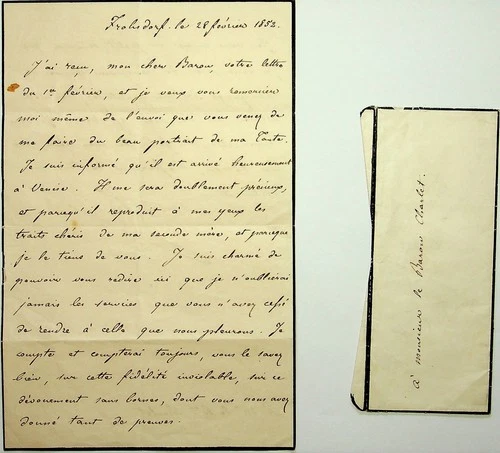 Frohsdorf. le 28 février 1852.
J'ai reçu, mon cher Baron, votre lettre
du 1er février, et je veux vous remercier
moi même de l'envoi que vous venez de
me faire du beau portrait de ma Tante.
Je suis informé qu'il est arrivé heureusement
à Venise. Il me sera doublement précieux,
et parcequ'il reproduit à mes yeux les
traits chéris de ma seconde mère, et parceque
je le tiens de vous. Je suis charmé de
pouvoir vous redire ici que je n'oublierai
jamais les services que vous n'avez cessé
de rendre à celle que nous pleurons. Je
compte et compterai toujours, vous le savez
bien, sur cette fidélité inviolable, sur ce
dévouement sans bornes, dont vous nous avez
donné tant de preuves.
à monsieur le Baron Charlet.